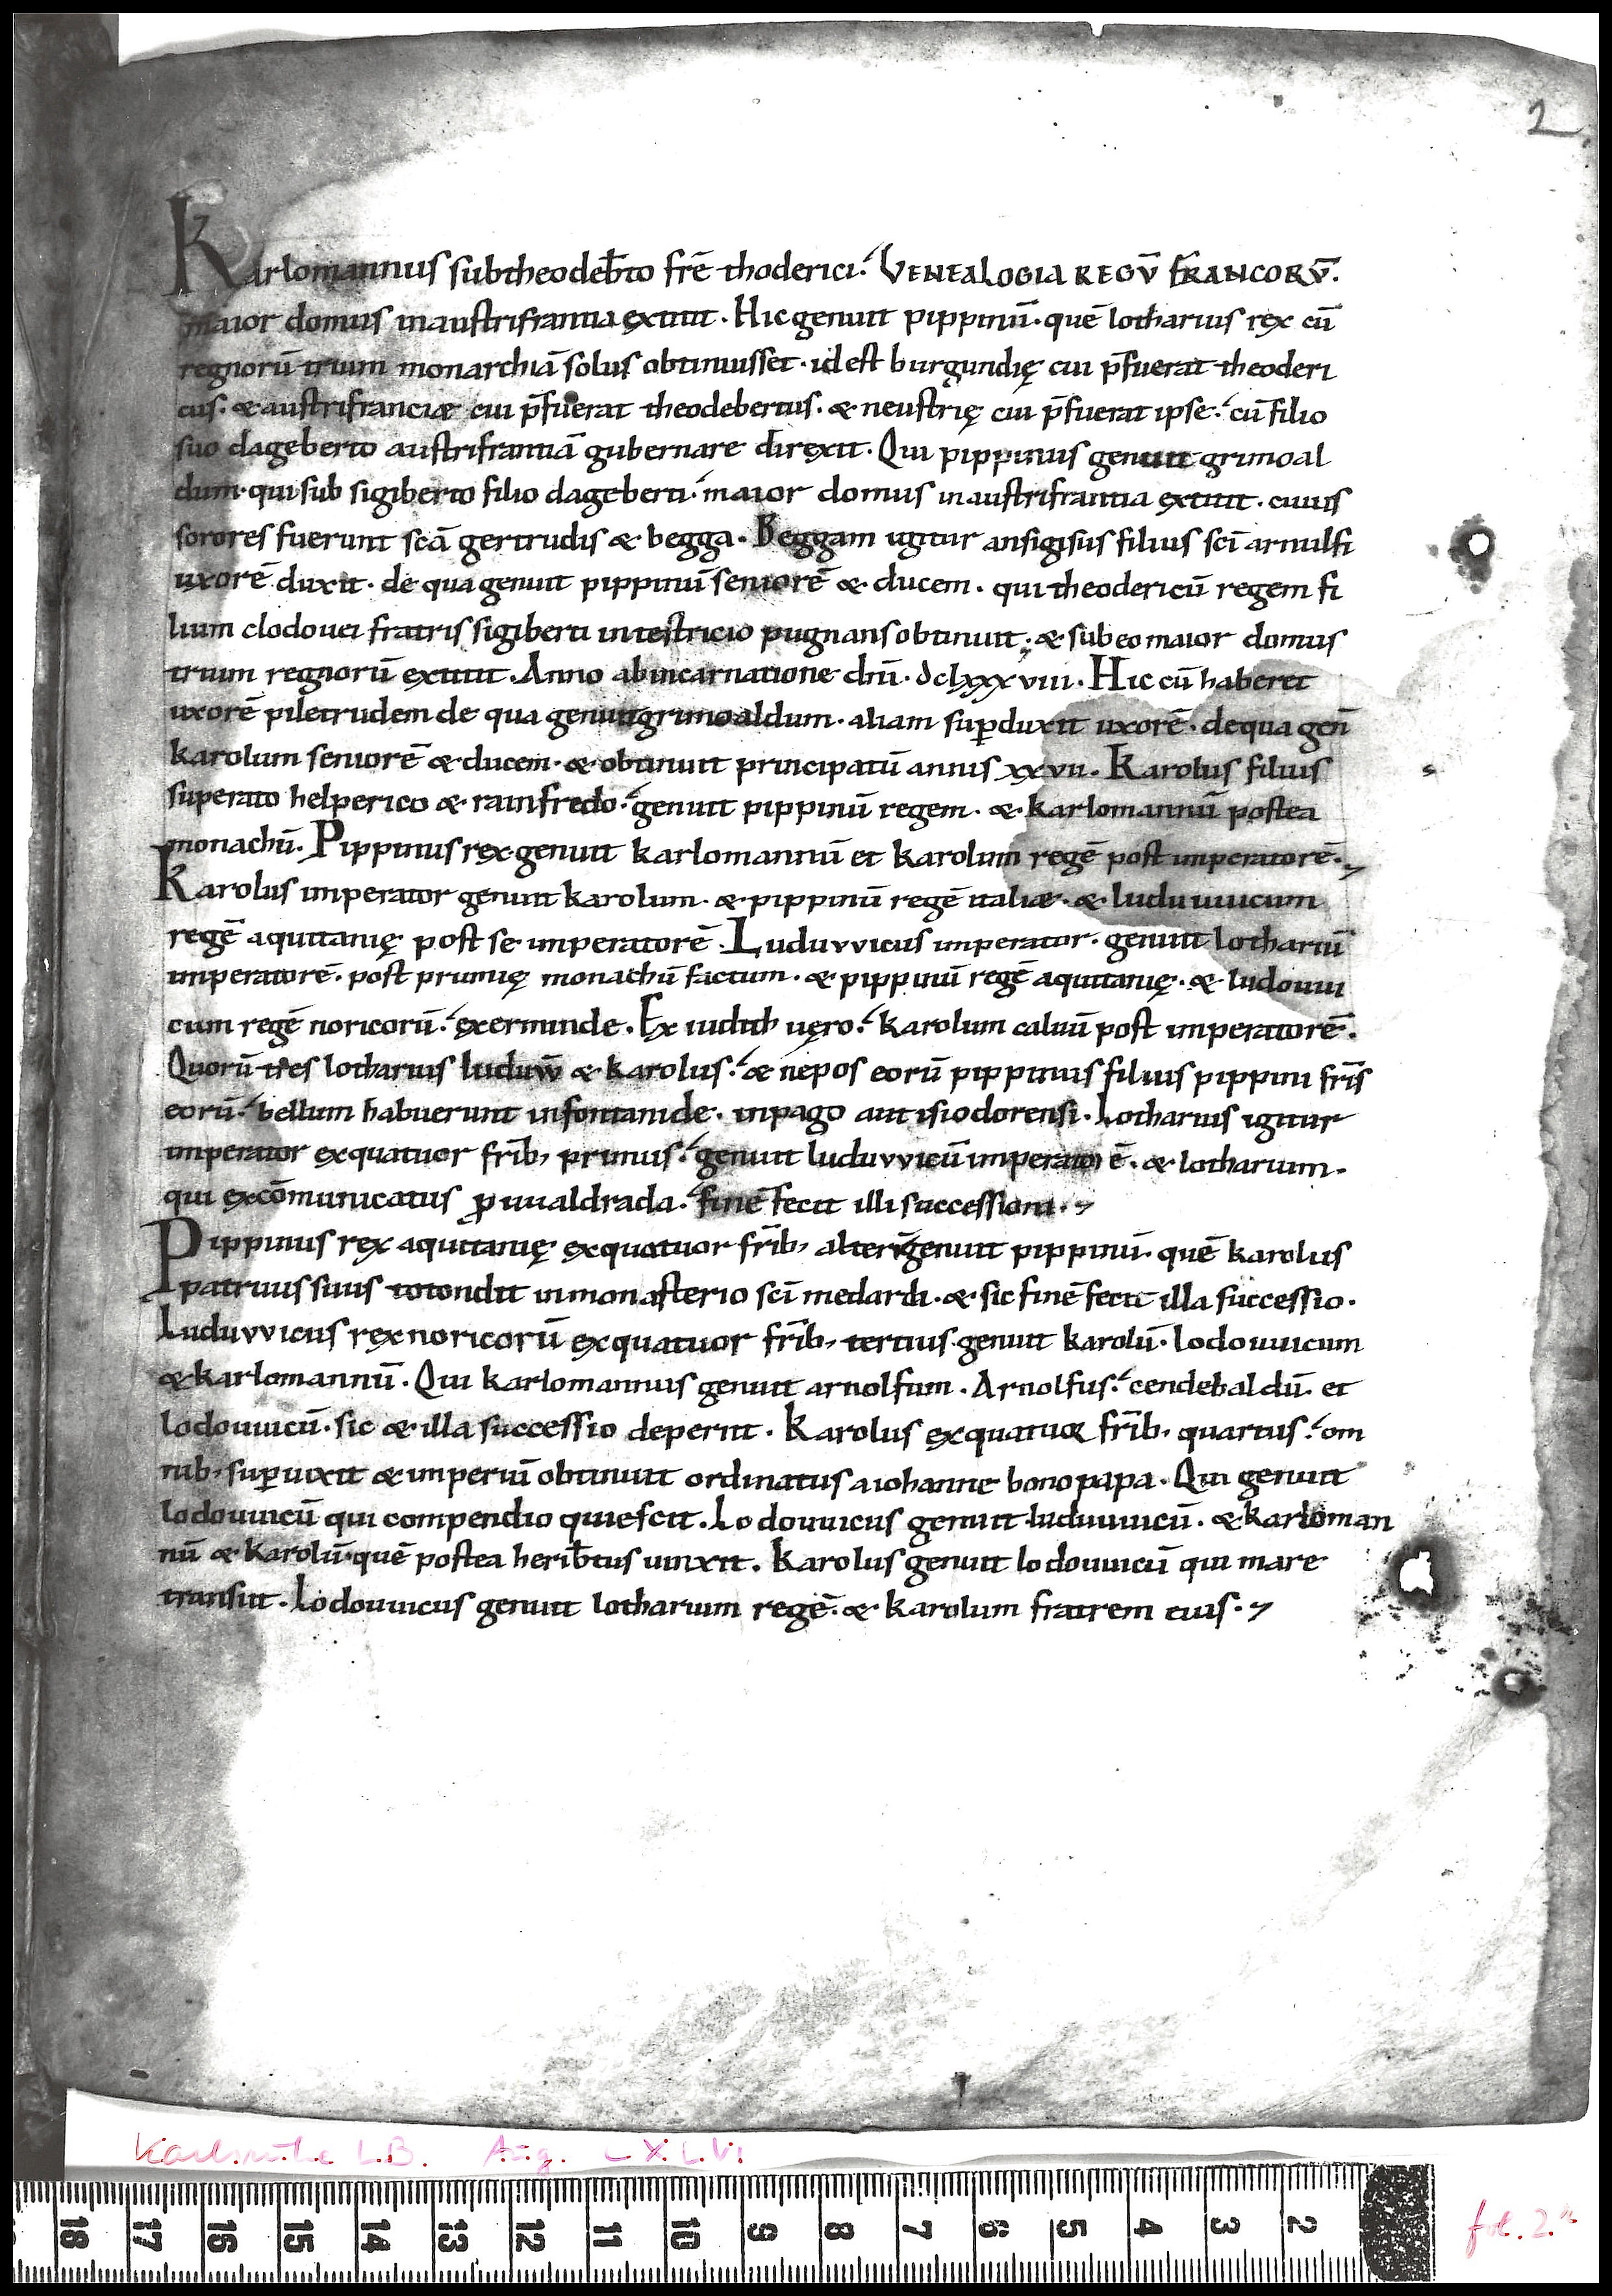 2
Karlomannus sub theodeb̄to fr̄e thoderici. GENEALOGIA REGŪ FRANCORŪ.
maior domus in austrifrantia extitit. Hic genuit pippinū. quē lotharius rex cū
regnorū trium monarchiā solus obtinuisset. id est burgundię cui p̄fuerat theoderi
cus. & austrifranciæ cui p̄fuerat theodebertus. & neustrię cui p̄fuerat ipse. cū filio
suo dageberto austrifrantiā gubernare direxit. Qui pippinus genuit grimoal
dum. qui sub sigiberto filio dageberti. maior domus in austrifrantia extitit. cuius
sorores fuerunt scā gertrudis & begga. Beggam igitur ansigisus filius sc̄i arnulfi
uxorē duxit. de qua genuit pippinū seniorē & ducem. qui theodericū regem fi
lium clodouei fratris sigiberti in testricio pugnans obtinuit. & sub eo maior domus
trium regnorū extitit. Anno ab incarnatione dn̄i. dclxxxviii. Hic cū haberet
uxorē piletrudem de qua genuit grimoaldum. aliam suꝑduxit uxorē. de qua geñ
karolum seniorē & ducem. & obtinuit principatū annis xxvii. Karolus filius
superato helperico & rainfredo. genuit pippinū regem. & karlomannū postea
monachū. Pippinus rex genuit karlomannū et karolum regē post imperatorē.
Karolus imperator genuit karolum. & pippinū regē italiæ. & luduuuicum
regē aquitanię post se imperatorē. Luduvvicus imperator. genuit lothariū
imperatorē. post prumię monachū factum. & pippinū regē aquitanię. & ludouui
cum regē noricorū. ex erminde. Ex iudith uęro. karolum caluū post imperatorē.
Quorū tres lotharius luduw̄ & karolus. & nepos eorū pippinus filius pippini fr̄is
eorū. bellum habuerunt in fontanide. in pago autisiodorensi. Lotharius igitur
imperator ex quatuor fr̄ib, primus. genuit luduvvicū imperatorē. & lotharium.
qui excōmunicatus ꝓ uualdrada. finē fecit illi successioni.
Pippinus rex aquitanię ex quatuor fr̄ib, alter genuit pippinū. quē karolus
patruus suus totondit in monasterio sc̄i medardi. & sic finē fecit illa successio.
Luduvvicus rex noricorū ex quatuor fr̄ib, tertius genuit karolū. lodouuicum
& karlomannū. Qui karlomannus genuit arnolfum. Arnolfus. cendebaldū et
lodouuicū. sic & illa successio deperiit. Karolus ex quatuor fr̄ib, quartus. om
nib, suꝑuixit & imperiū obtinuit ordinatus a iohanne bono papa. Qui genuit
lodouuicū qui compendio quiescit. Lodouuicus genuit luduuuicū. & karloman
nū & karolū quē postea herib̄tus uinxit. Karolus genuit lodouuicū qui mare
transiit. Lodouuicus genuit lotharium regē. & karolum fratrem eius.
Karlsruhe L.B. Aug. CXLVI
18 17 16 15 14 13 12 11 10 9 8 7 6 5 4 3 2
fol. 2.r